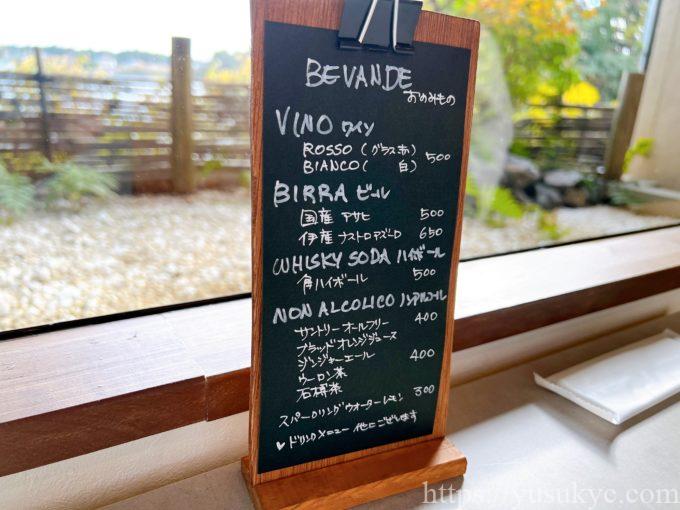 BEVANDE
おのみもの
VINO ワイン
ROSSO (グラス赤) 500
BIANCO ( 白)
BIRRA ビール
国産 アサヒ 500
伊産 ナストロアズーロ 650
WHISKY SODA ハイボール
角ハイボール 500
NON ALCOLICO ノンアルコール
サントリーオールフリー 400
ブラッドオレンジジュース
ジンジャーエール 400
ウーロン茶
石榑茶
スパークリングウォーターレモン 300
♥ドリンクメニュー 他にございます
https://yusukyc.com